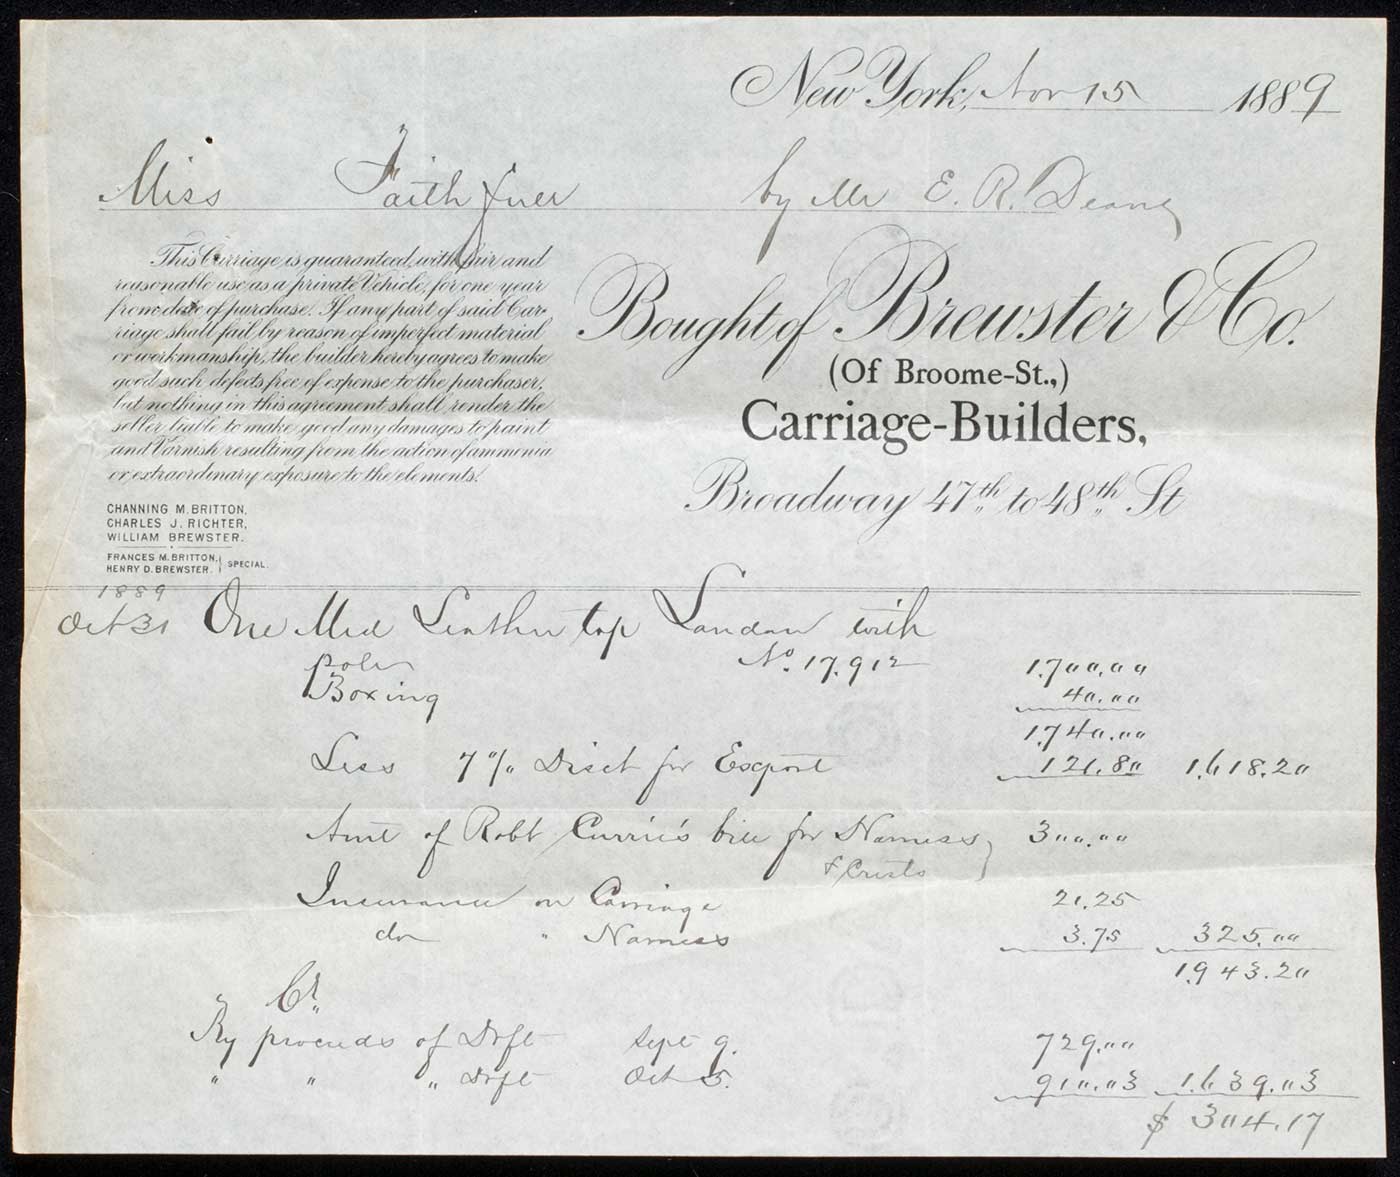 New York, Nov 15 1889
Miss Faithfull by Mr E. R. Deane
This Carriage is guaranteed, with fair and
reasonable use as a private Vehicle, for one year
from date of purchase. If any part of said Car-
riage shall fail by reason of imperfect material
or workmanship, the builder hereby agrees to make
good such defects free of expense to the purchaser,
but nothing in this agreement shall render the
seller liable to make good any damages to paint
and Varnish resulting from the action of ammonia
or extraordinary exposure to the elements.
Bought of Brewster & Co.
(Of Broome-St.,)
Carriage-Builders,
Broadway 47th to 48th St
CHANNING M. BRITTON,
CHARLES J. RICHTER,
WILLIAM BREWSTER.
FRANCES M. BRITTON,
HENRY D. BREWSTER. } SPECIAL.
1889
Oct 31 One Med Leather top Landau with
pole No. 17,912 1,700.00
Boxing 40.00
1,740.00
Less 7% Disct for Export 121.80 1,618.20
Amt of Robt Currie's bill for Harness 300.00
& Crests
Insurance on Carriage 21.25
do " Harness 3.75 325.00
1,943.20
Cr.
By proceeds of Drft Sept 9. 729.00
" " " Drft Oct 5. 910.03 1,639.03
$ 304.17